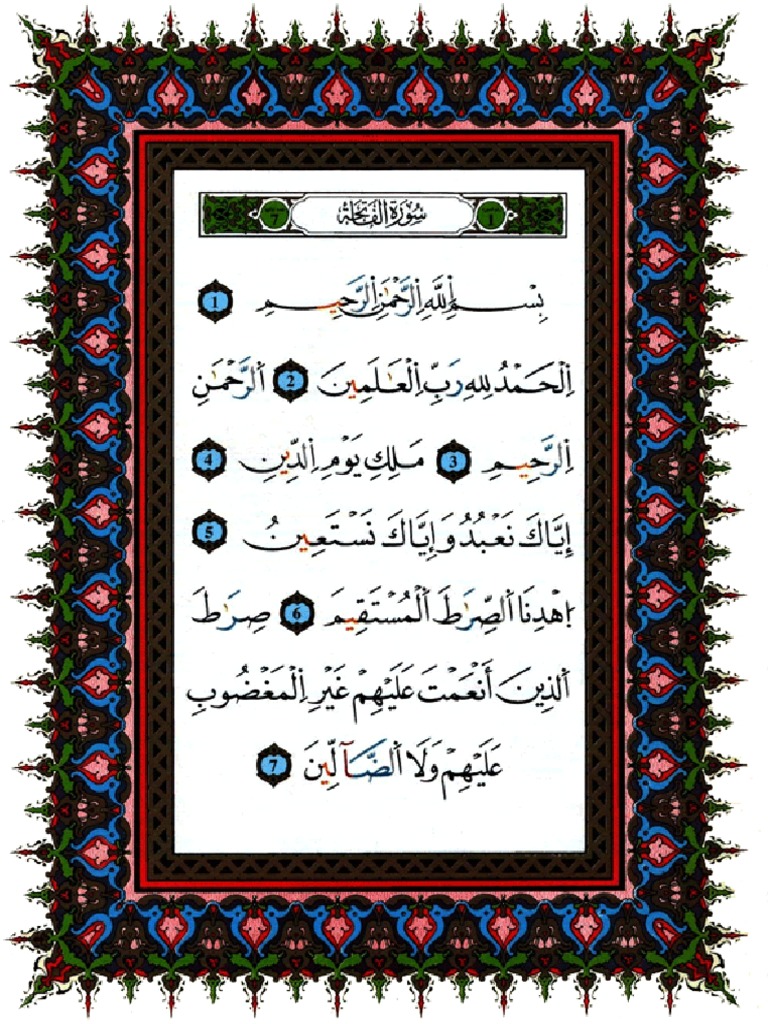 7 سُورَةُ الفَاتِحَة 1
بِسْمِ اِ۬للَّهِ اِ۬لرَّحْمَٰنِ اِ۬لرَّحِيمِ 1
اِ۬لْحَمْدُ لِلهِ رَبِّ اِ۬لْعَٰلَمِينَ 2 اَ۬لرَّحْمَٰنِ
اِ۬لرَّحِيمِ 3 مَلِكِ يَوْمِ اِ۬لدِّينِ 4
إِيَّاكَ نَعْبُدُ وَإِيَّاكَ نَسْتَعِينُ 5
اِ۪هْدِنَا اَ۬لصِّرَٰطَ اَ۬لْمُسْتَقِيمَ 6 صِرَٰطَ
اَ۬لذِينَ أَنْعَمْتَ عَلَيْهِمْ غَيْرِ اِ۬لْمَغْضُوبِ
عَلَيْهِمْ وَلَا اَ۬لضَّآلِّينَ 7